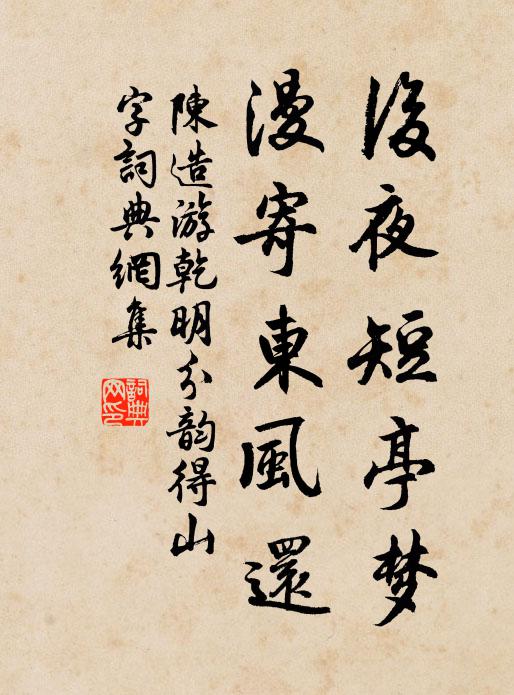 後夜短亭梦
漫寄東風還
陳造游乾明分韵得山
字詞典網集
詞典
网印